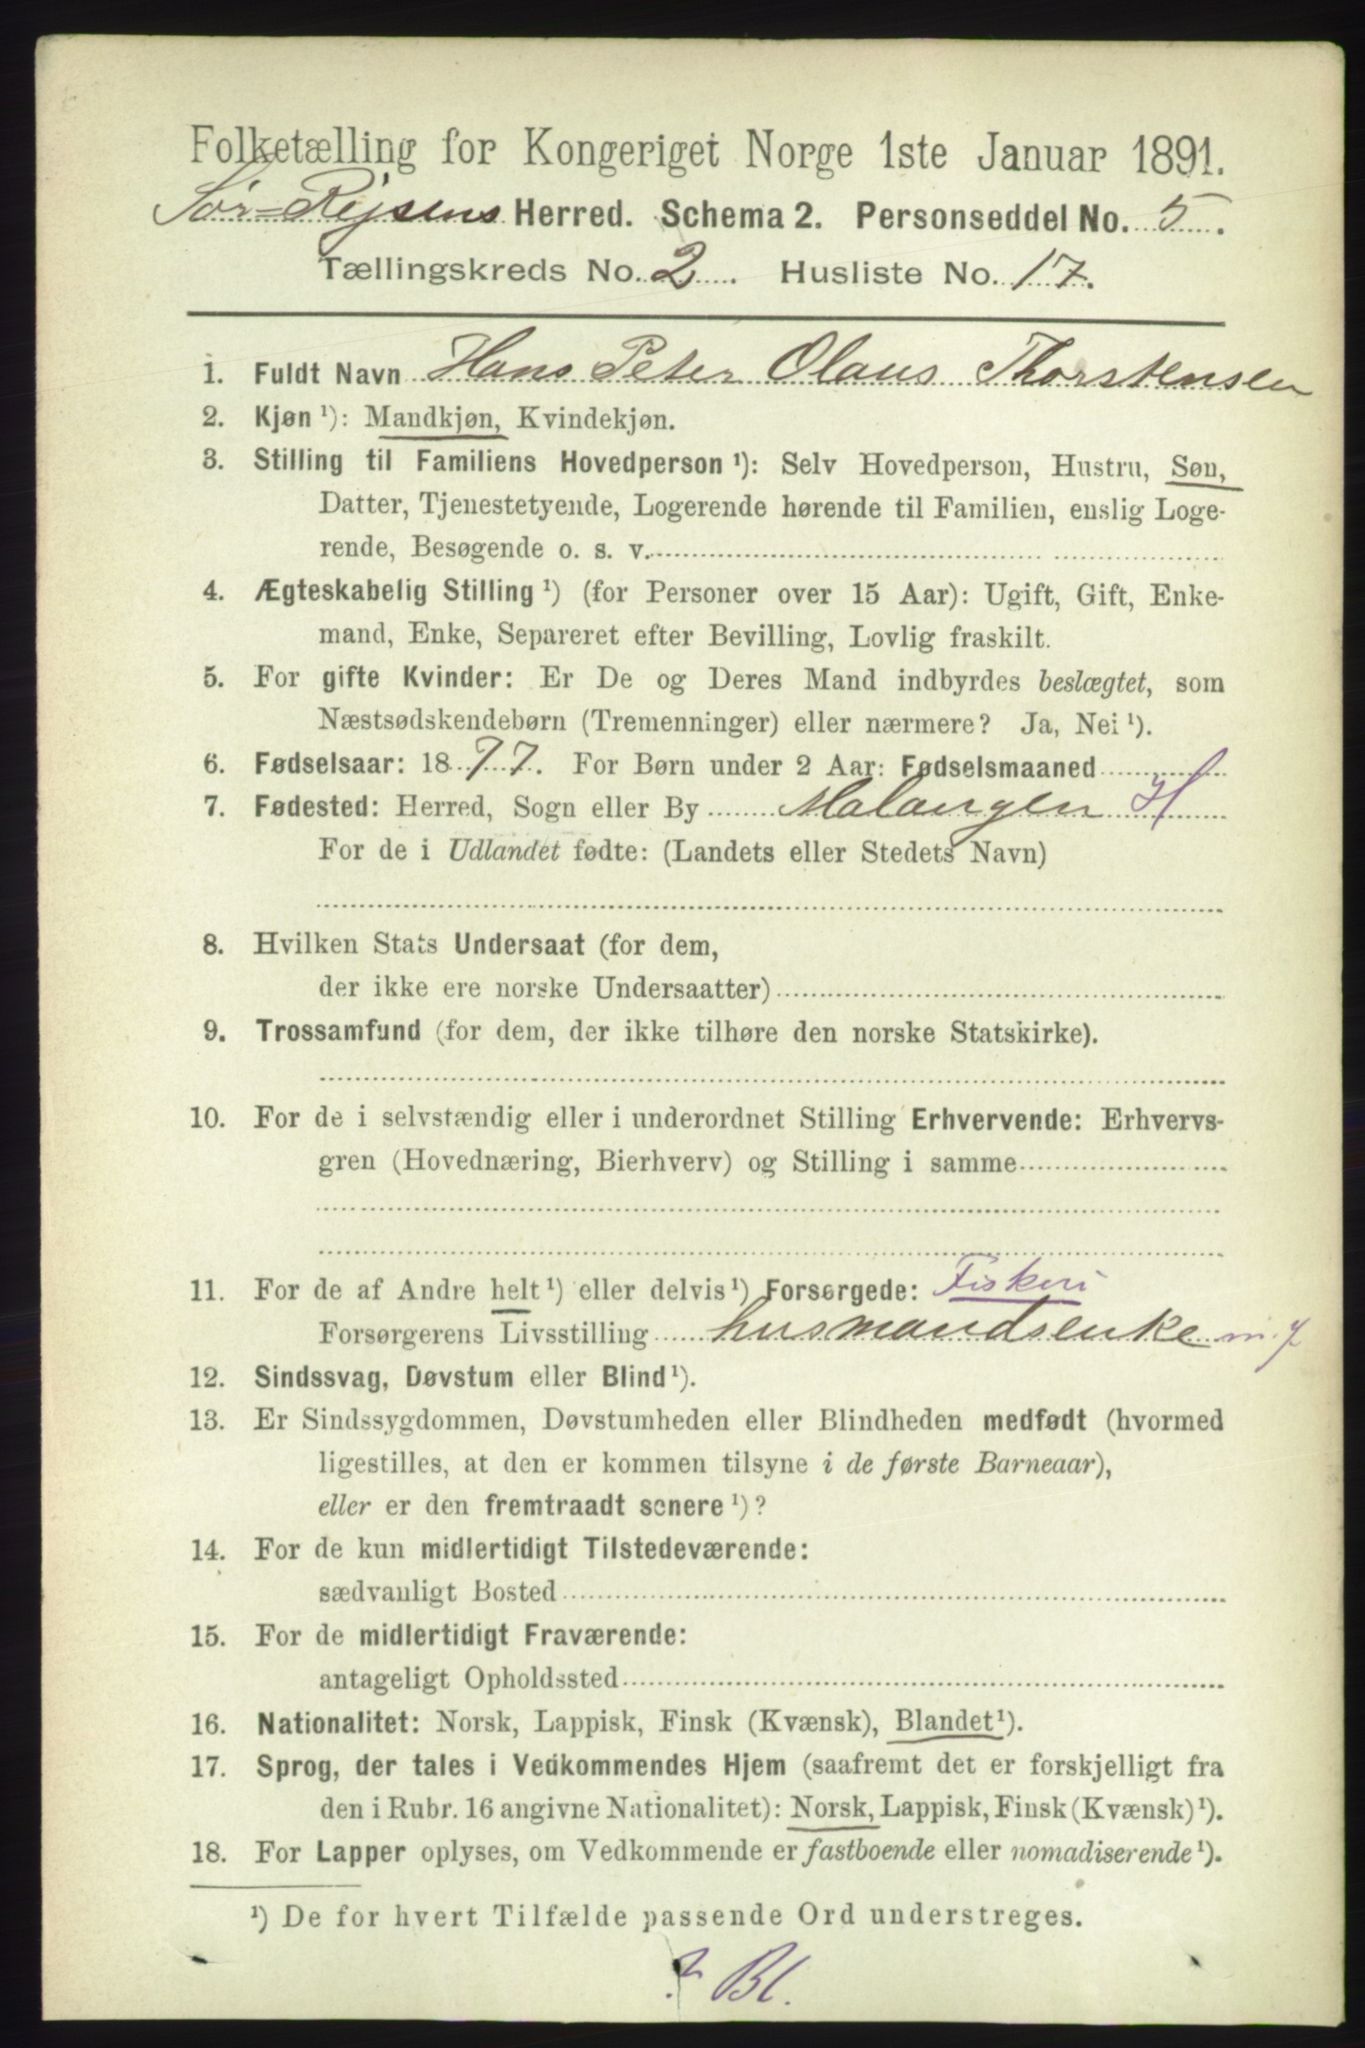 Folketælling for Kongeriget Norge 1ste Januar 1891.
Sør-Rejsens Herred. Schema 2. Personseddel No. 5.
Tællingskreds No. 2. Husliste No. 17.
1. Fuldt Navn Hans Peter Olaus Thorstensen
2. Kjøn ¹): Mandkjøn, Kvindekjøn.
3. Stilling til Familiens Hovedperson ¹): Selv Hovedperson, Hustru, Søn,
Datter, Tjenestetyende, Logerende hørende til Familien, enslig Loge-
rende, Besøgende o. s. v.
4. Ægteskabelig Stilling ¹) (for Personer over 15 Aar): Ugift, Gift, Enke-
mand, Enke, Separeret efter Bevilling, Lovlig fraskilt.
5. For gifte Kvinder: Er De og Deres Mand indbyrdes beslægtet, som
Næstsødskendebørn (Tremenninger) eller nærmere? Ja, Nei ¹).
6. Fødselsaar: 1877. For Børn under 2 Aar: Fødselsmaaned
7. Fødested: Herred, Sogn eller By Malangen H
For de i Udlandet fødte: (Landets eller Stedets Navn)
8. Hvilken Stats Undersaat (for dem,
der ikke ere norske Undersaatter)
9. Trossamfund (for dem, der ikke tilhøre den norske Statskirke).
10. For de i selvstændig eller i underordnet Stilling Erhvervende: Erhvervs-
gren (Hovednæring, Bierhverv) og Stilling i samme
11. For de af Andre helt ¹) eller delvis ¹) Forsørgede: Fiskeri
Forsørgerens Livsstilling husmandsenke m. j
12. Sindssvag, Døvstum eller Blind ¹).
13. Er Sindssygdommen, Døvstumheden eller Blindheden medfødt (hvormed
ligestilles, at den er kommen tilsyne i de første Barneaar),
eller er den fremtraadt senere ¹)?
14. For de kun midlertidigt Tilstedeværende:
sædvanligt Bosted
15. For de midlertidigt Fraværende:
antageligt Opholdssted
16. Nationalitet: Norsk, Lappisk, Finsk (Kvænsk), Blandet ¹).
17. Sprog, der tales i Vedkommendes Hjem (saafremt det er forskjelligt fra
den i Rubr. 16 angivne Nationalitet): Norsk, Lappisk, Finsk (Kvænsk) ¹).
18. For Lapper oplyses, om Vedkommende er fastboende eller nomadiserende ¹).
¹) De for hvert Tilfælde passende Ord understreges.
? Bl.